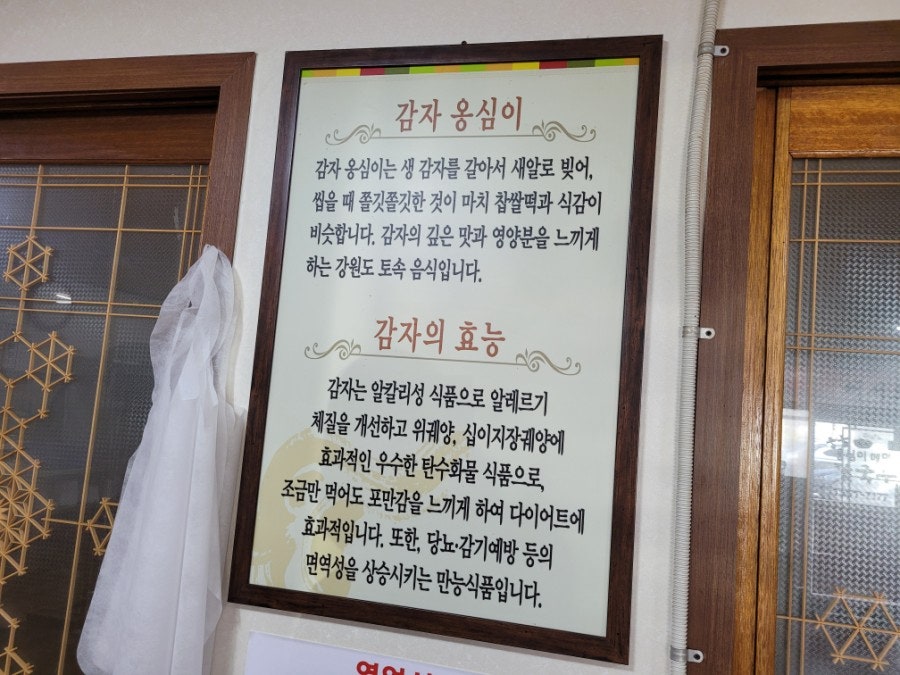 감자 옹심이
감자 옹심이는 생 감자를 갈아서 새알로 빚어,
씹을 때 쫄깃쫄깃한 것이 마치 찹쌀떡과 식감이
비슷합니다. 감자의 깊은 맛과 영양분을 느끼게
하는 강원도 토속 음식입니다.
감자의 효능
감자는 알칼리성 식품으로 알레르기
체질을 개선하고 위궤양, 십이지장궤양에
효과적인 우수한 탄수화물 식품으로,
조금만 먹어도 포만감을 느끼게 하여 다이어트에
효과적입니다. 또한, 당뇨·감기예방 등의
면역성을 상승시키는 만능식품입니다.